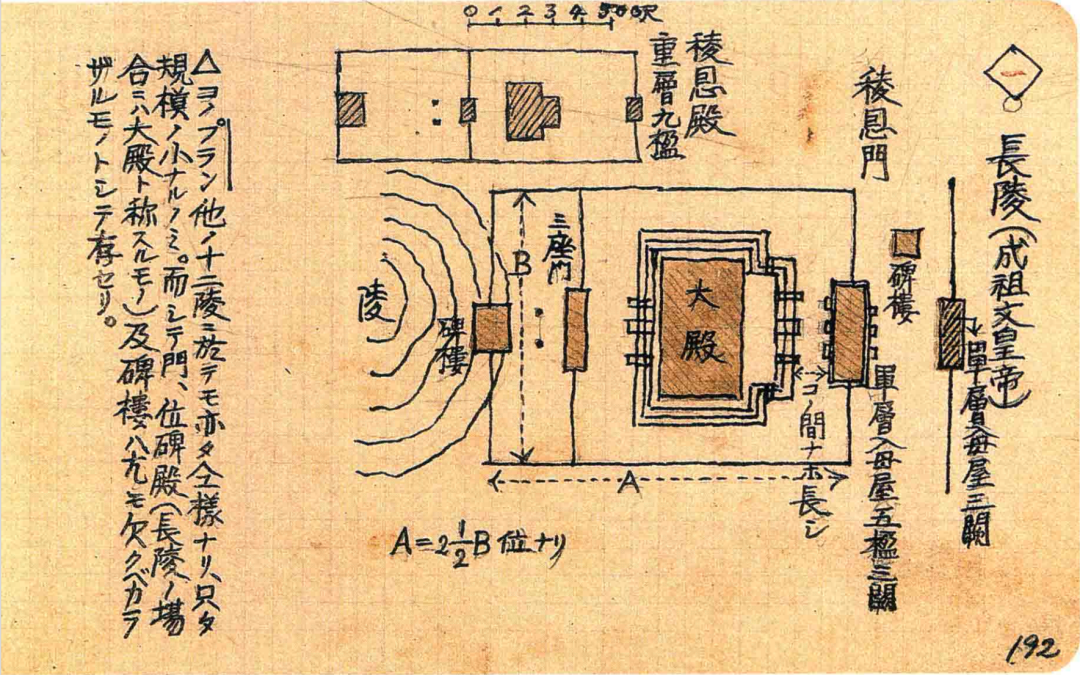 一
長陵(成祖文皇帝)
単層入母屋三闕
碑樓
稜恩門
単層入母屋五楹三闕
コノ間ナホ長シ
稜恩殿
重層九楹
0 1 2 3 4 5
大殿
三座門
B
碑樓
陵
A
A=2½B位ナリ
△ヨノプラン他ノ十二陵ニ於テモ亦タ仝様ナリ、只タ
規模ノ小ナルノミ。而シテ門、位碑殿(長陵ノ場
合ニハ大殿ト称スルモノ)及碑樓ハ尤モ欠クベカラ
ザルモノトシテ存セリ。
192